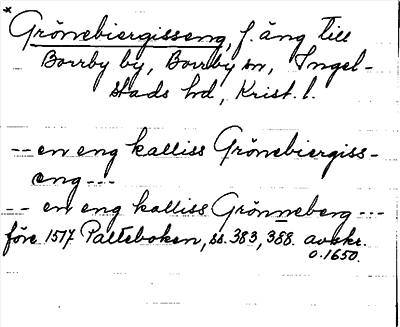 * Grönebiergisseng, f. äng till
Borrby by, Borrby sn, Ingel-
stads hd, Krist. l.
-- en eng kalliss Grönebiergiss-
eng ---
-- en eng kalliss Grönneberg ---
före 1517. Palteboken, ss. 383, 388. avskr.
o. 1650.